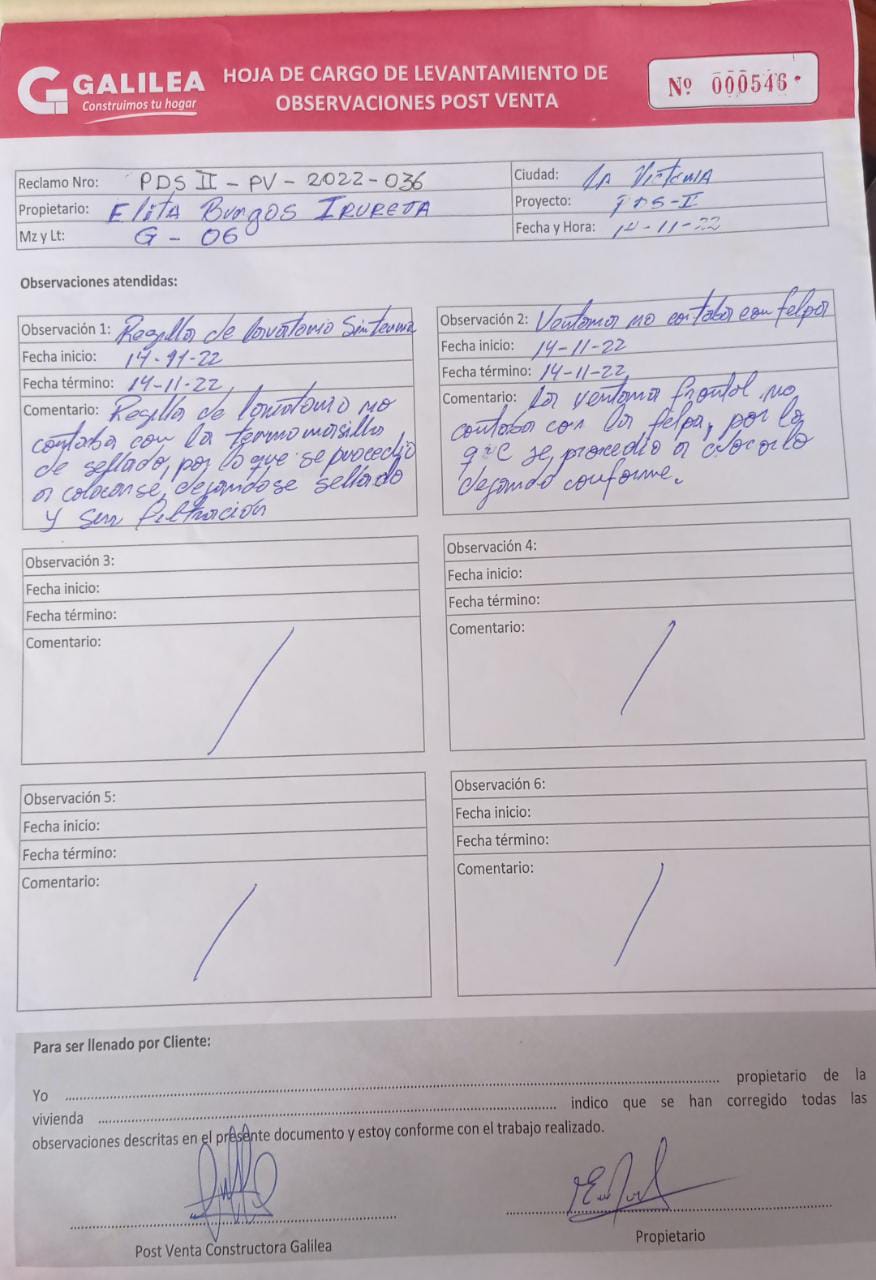 GALILEA
Construimos tu hogar
HOJA DE CARGO DE LEVANTAMIENTO DE
OBSERVACIONES POST VENTA
Nº 000546
Reclamo Nro: PDS II - PV - 2022-036
Ciudad: LA VICTORIA
Propietario: Elita Burgos Irureta
Proyecto: PDS-II
Mz y Lt: G - 06
Fecha y Hora: 14-11-22
Observaciones atendidas:
Observación 1: Regilla de lavatorio Sin
Fecha inicio: 14-11-22
Fecha término: 14-11-22
Comentario: Regilla de lavatorio no
contaba con la termomasilla
de sellado, por lo que se procedio
a colocarse, dejandose sellado
y sin filtración
Observación 2: Ventana no contaba con felpa
Fecha inicio: 14-11-22
Fecha término: 14-11-22
Comentario: La ventana frontal no
contaba con la felpa, por lo
que se procedio a colocarlo
dejando conforme.
Observación 3:
Fecha inicio:
Fecha término:
Comentario:
Observación 4:
Fecha inicio:
Fecha término:
Comentario:
Observación 5:
Fecha inicio:
Fecha término:
Comentario:
Observación 6:
Fecha inicio:
Fecha término:
Comentario:
Para ser llenado por Cliente:
Yo ........ propietario de la
vivienda ........ indico que se han corregido todas las
observaciones descritas en el presente documento y estoy conforme con el trabajo realizado.
Post Venta Constructora Galilea
Propietario